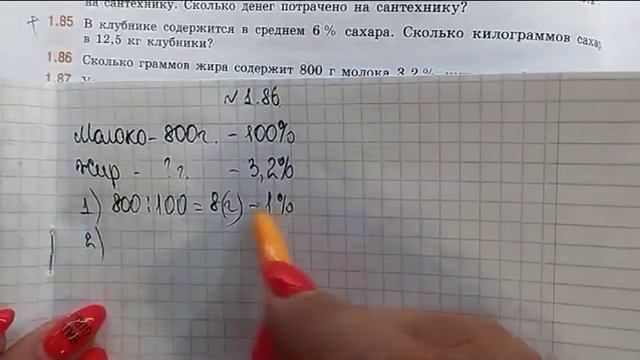 на сантехнику. Сколько денег потрачено на сантехнику?
1.85 В клубнике содержится в среднем 6 % сахара. Сколько килограммов сахар
в 12,5 кг клубники?
1.86 Сколько граммов жира содержит 800 г молока 3,2 %
1.87
№ 1.86.
Молоко - 800г. - 100%
Жир - ? г. - 3,2%
1) 800:100 = 8(г) - 1%
2)